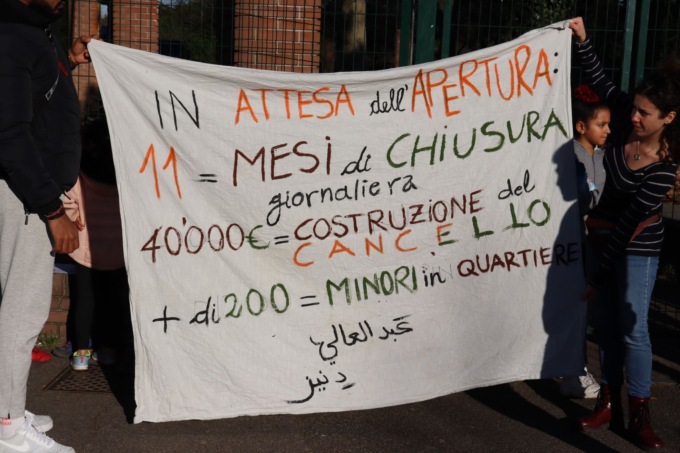 IN ATTESA dell'APERTURA:
11 = MESI di CHIUSURA
giornaliera
40'000€ = COSTRUZIONE del
CANCELLO
+ di 200 = MINORI in QUARTIERE
عبد العالي
دنيز